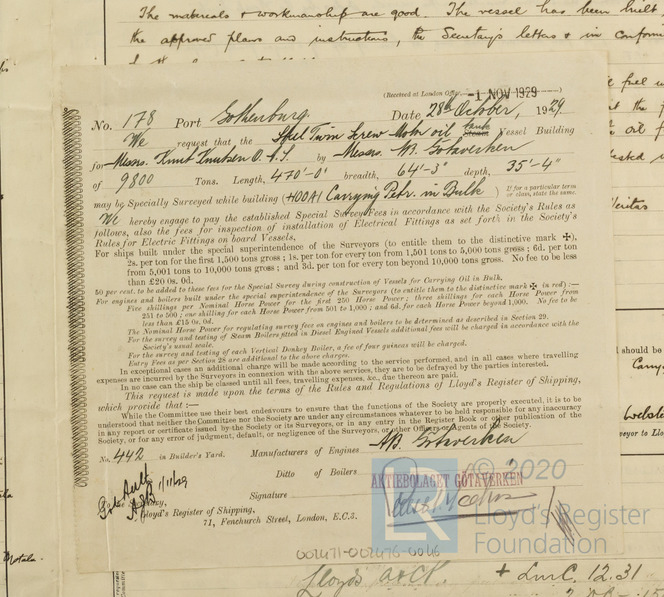 The materials & workmanship are good. The vessel has been built
the approved plans and instructions, the Secretary's letters & in conform
(Received at London Office -1 NOV 1929
No. 178 Port Gothenburg. Date 28th October, 1929.
We request that the Steel Twin Screw Motor oil tank Steam Vessel Building
for Messrs. Knut Knutsen O.A.S. by Messrs. AB. Götaverken
of 9800 Tons. Length, 470'-0" breadth, 64'-3" depth, 35'-4"
may be Specially Surveyed while building (✠100A1 Carrying Petr. in Bulk) If for a particular term or class, state the same.
We hereby engage to pay the established Special Survey Fees in accordance with the Society's Rules as
follows, also the fees for inspection of installation of Electrical Fittings as set forth in the Society's
Rules for Electric Fittings on board Vessels.
For ships built under the special superintendence of the Surveyors (to entitle them to the distinctive mark ✠),
2s. per ton for the first 1,500 tons gross; 1s. per ton for every ton from 1,501 to 5,000 tons gross; 6d. per ton
from 5,001 tons to 10,000 tons gross; and 3d. per ton for every ton beyond 10,000 tons gross. No fee to be less
than £20 0s. 0d.
50 per cent. to be added to these fees for the Special Survey during construction of Vessels for Carrying Oil in Bulk.
For engines and boilers built under the special superintendence of the Surveyors (to entitle them to the distinctive mark ✠ in red):—
Five shillings per Nominal Horse Power for the first 250 Horse Power; three shillings for each Horse Power from
251 to 500; one shilling for each Horse Power from 501 to 1,000; and 6d. for each Horse Power beyond 1,000. No fee to be
less than £15 0s. 0d.
The Nominal Horse Power for regulating survey fees on engines and boilers to be determined as described in Section 29.
For the survey and testing of Steam Boilers fitted in Diesel Engined Vessels additional fees will be charged in accordance with the
Society's usual scale.
For the survey and testing of each Vertical Donkey Boiler, a fee of four guineas will be charged.
Entry Fees as per Section 28 are additional to the above charges.
In exceptional cases an additional charge will be made according to the service performed, and in all cases where travelling
expenses are incurred by the Surveyors in connexion with the above services, they are to be defrayed by the parties interested.
In no case can the ship be classed until all fees, travelling expenses, &c., due thereon are paid.
This request is made upon the terms of the Rules and Regulations of Lloyd's Register of Shipping,
which provide that:—
While the Committee use their best endeavours to ensure that the functions of the Society are properly executed, it is to be
understood that neither the Committee nor the Society are under any circumstances whatever to be held responsible for any inaccuracy
in any report or certificate issued by the Society or its Surveyors, or in any entry in the Register Book or other publication of the
Society, or for any error of judgment, default, or negligence of the Surveyors, or other Officers or Agents of the Society.
No. 442 in Builder's Yard. Manufacturers of Engines AB. Götaverken
Ditto of Boilers
AKTIEBOLAGET GÖTAVERKEN
Signature
1/11/29
Lloyd's Register of Shipping,
71, Fenchurch Street, London, E.C.3.
© 2020
LR
Lloyd's Register
Foundation
002471-002476-0066
Lloyds A & C.P. + LMC. 12.31
should be
Carry
Webste
veyor to Lloyd
Veritas
Motala.